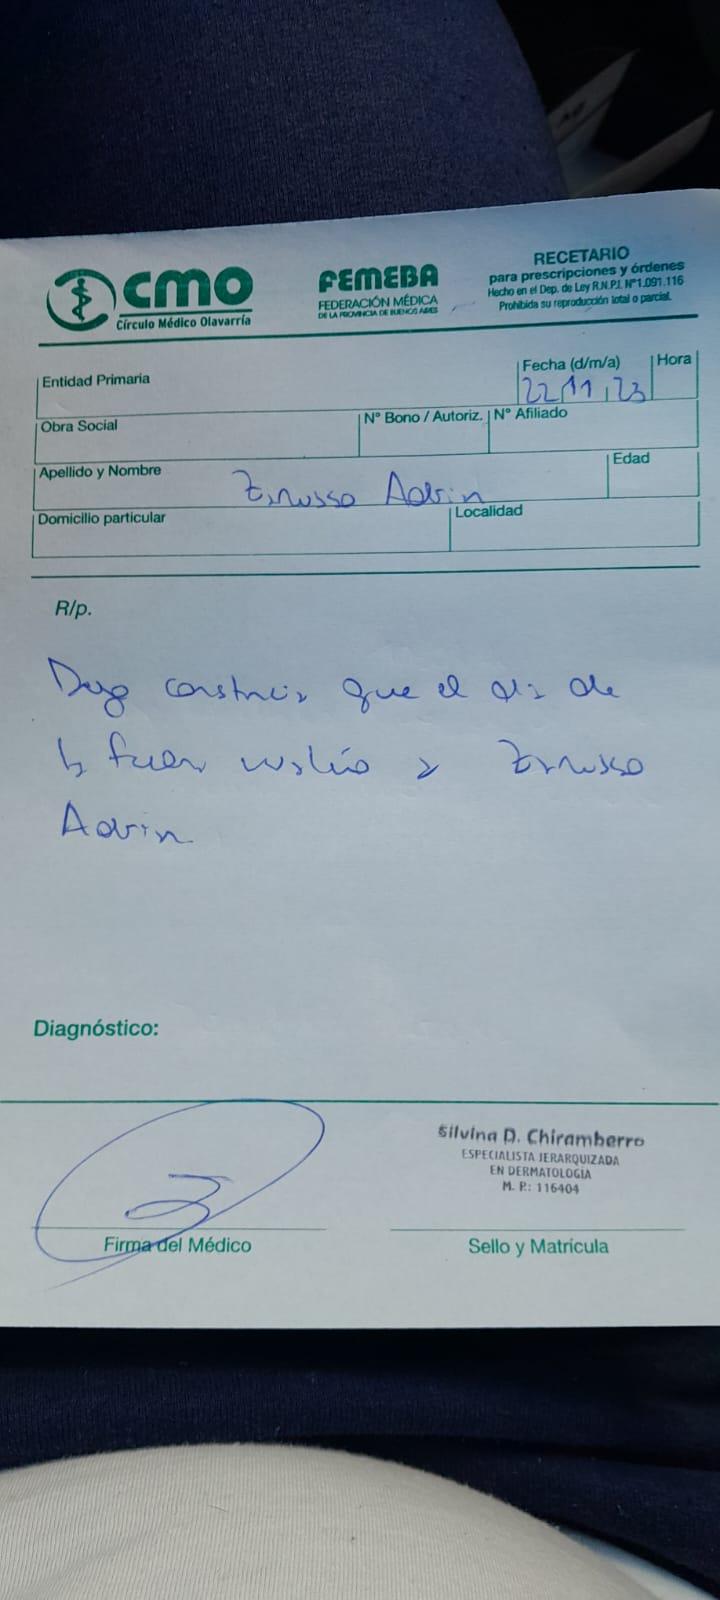 CMO
Círculo Médico Olavarría
FEMEBA
FEDERACIÓN MÉDICA
DE LA PROVINCIA DE BUENOS AIRES
RECETARIO
para prescripciones y órdenes
Hecho en el Dep. de Ley R.N.P.I. N° 1.091.116
Prohibida su reproducción total o parcial.
Entidad Primaria
Fecha (d/m/a)
22/11/23
Hora
Obra Social
N° Bono / Autoriz.
N° Afiliado
Apellido y Nombre
Edad
Domicilio particular
Localidad
R/p.
Dejo constancia que el día de
la fecha a
Diagnóstico:
Silvina D. Chiramberro
ESPECIALISTA JERARQUIZADA
EN DERMATOLOGÍA
M. P.: 116404
Firma del Médico
Sello y Matrícula